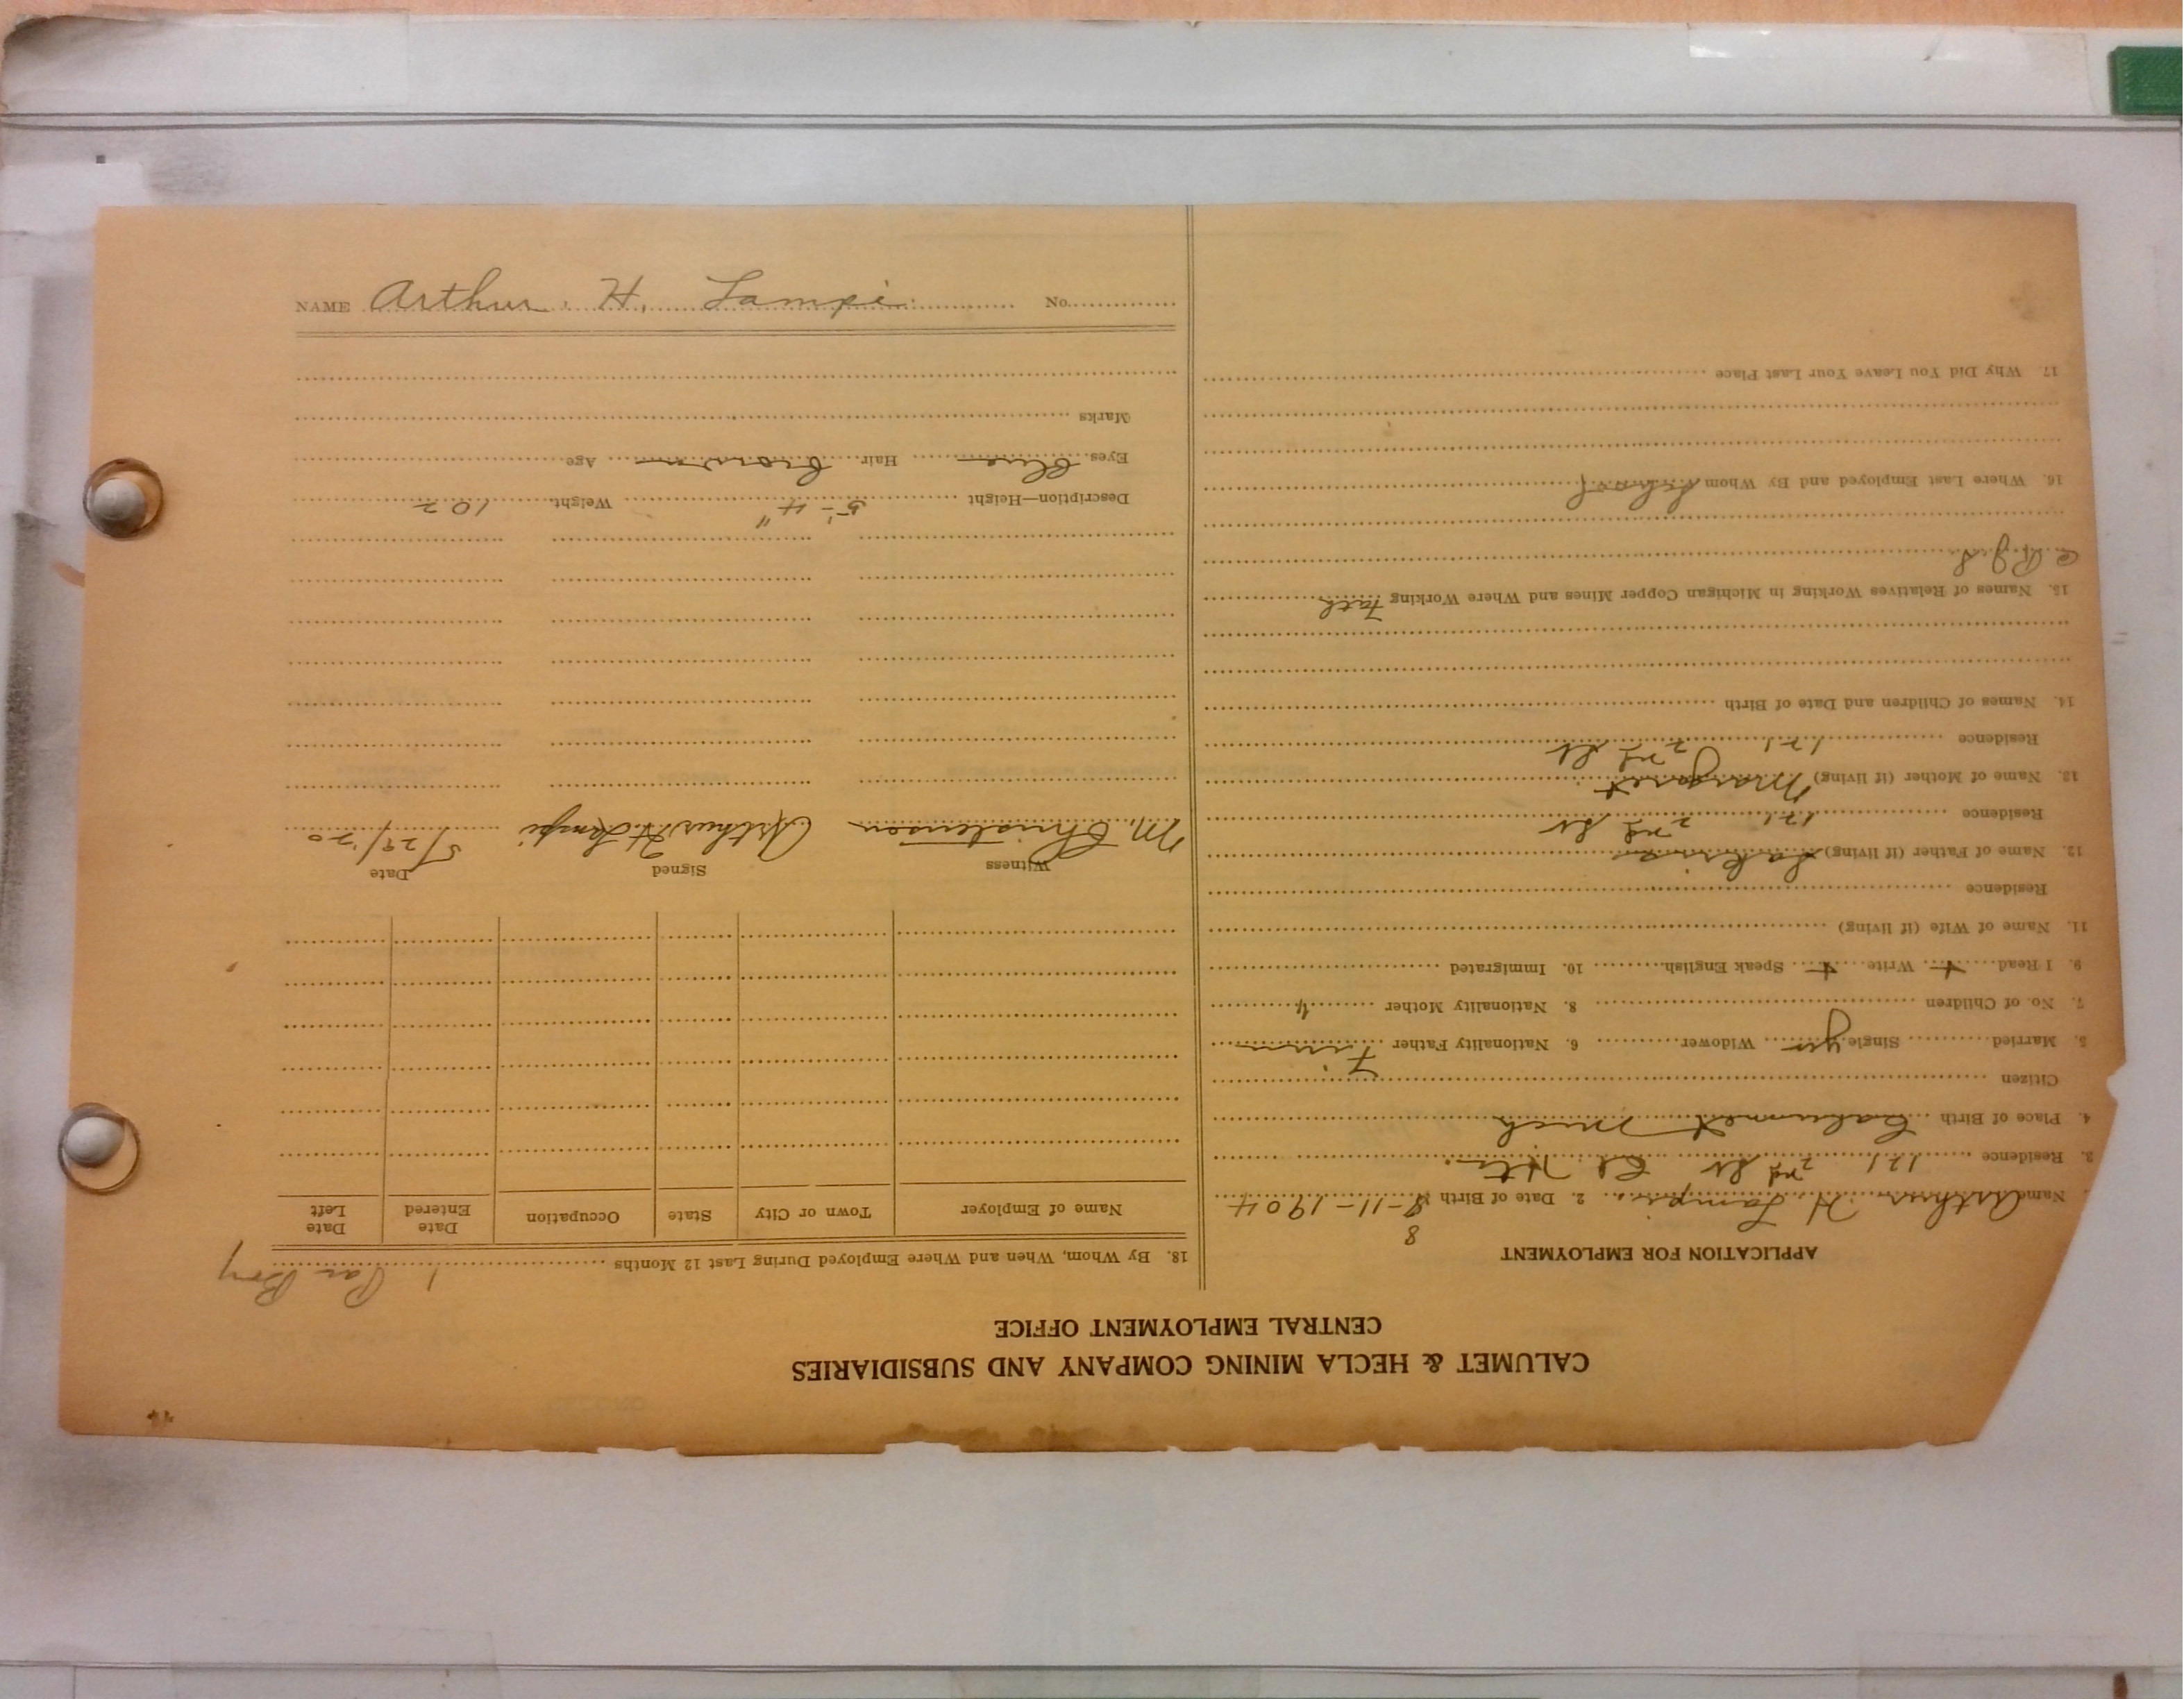 CALUMET & HECLA MINING COMPANY AND SUBSIDIARIES
CENTRAL EMPLOYMENT OFFICE
APPLICATION FOR EMPLOYMENT
Name Arthur H. Lampi 2. Date of Birth 8-11-1904
8
3. Residence 121 2nd St
4. Place of Birth Calumet Mich
Citizen
5. Married Single yes Widower 6. Nationality Father Finn
7. No. of Children 8. Nationality Mother "
9. I Read + Write + Speak English 10. Immigrated
11. Name of Wife (if living)
Residence
12. Name of Father (if living)
Residence 121 2nd St
13. Name of Mother (if living) Margaret
Residence 121 2nd St
14. Names of Children and Date of Birth
15. Names of Relatives Working in Michigan Copper Mines and Where Working Fath
16. Where Last Employed and By Whom School
17. Why Did You Leave Your Last Place
Boy
18. By Whom, When and Where Employed During Last 12 Months
Name of Employer Town or City State Occupation Date Entered Date Left
Witness Signed Date
M. Christensen Arthur H. Lampi 5/29/20
Description—Height 5'-4" Weight 102
Eyes Blue Hair Brown Age
Marks
NAME Arthur H. Lampi No.